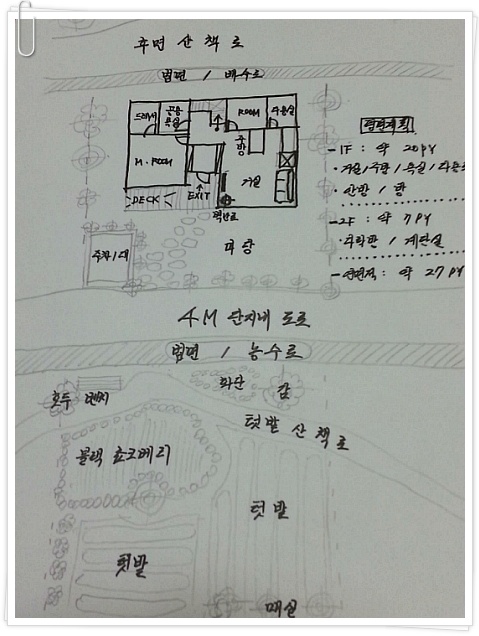 후면 산책로
법면 / 배수로
드레스
공용욕실
ROOM
다용실
M. ROOM
주방
거실
DECK
EXIT
벽난로
주차/대
마당
평면계획
- 1F : 약 20PY
• 거실/주방/욕실/다용
• 안방 / 방
- 2F : 약 7PY
• 다락방 / 계단실
- 연면적 : 약 27PY
4M 단지내 도로
법면 / 농수로
호두
벤치
화단
감
텃밭 산책로
블랙 쵸코베리
텃밭
텃밭
매실